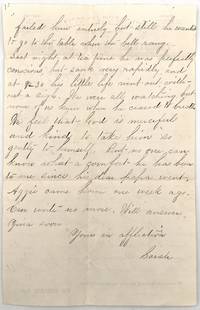 failed him entirely but still he wanted
to go to the table when the bell rang.
Last night at tea time he was perfectly
conscious but sank very rapidly, and
at 9.30 his little life went out with-
out a sigh. You were all watching but
none of us knew when he ceased to breathe
We feel that God is merciful
and kindly to take him so
gently to himself. But no one can
know what a comfort he has been
to me since his dear papa went.
Aggie came home one week ago.
Can write no more. Will answer
yours soon
Yours in affliction
Sarah